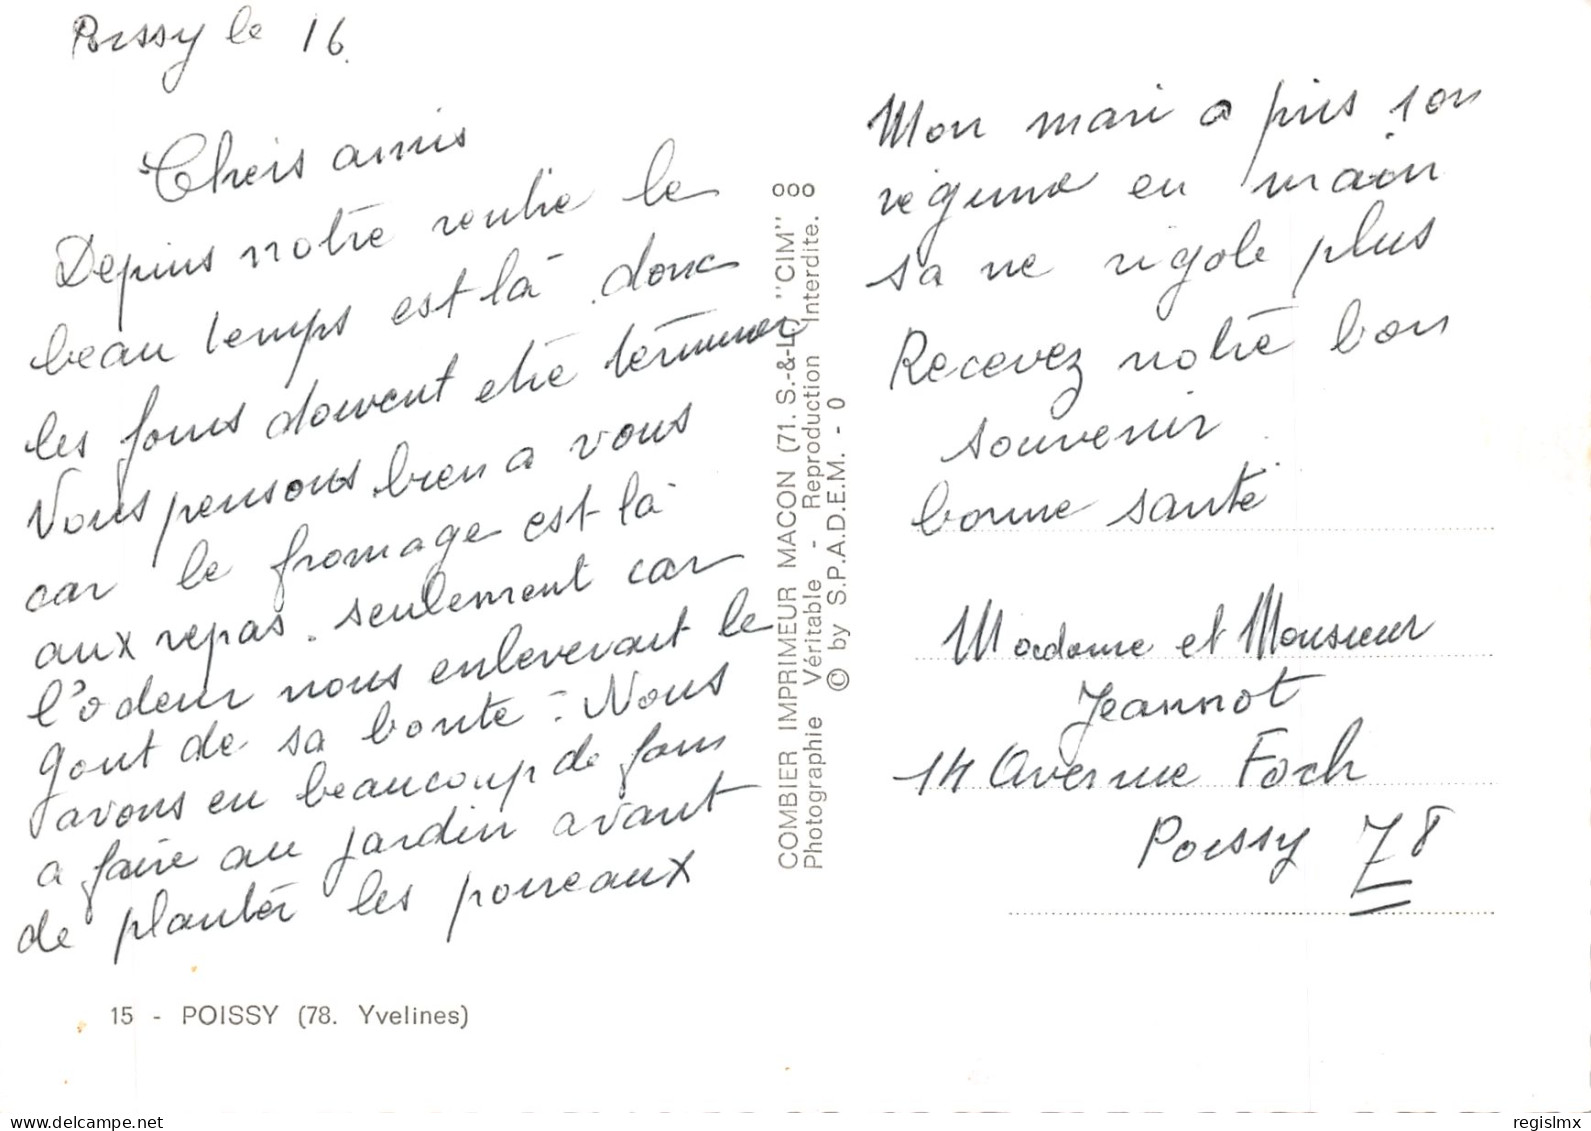 Poissy le 16
Chers amis
Depuis notre rentré le
beau temps est là donc
les foins doivent etre terminer
Nous pensons bien a vous
car le fromage est là
aux repas. seulement car
l'odeur nous enleverait le
gout de sa bonté. Nous
avons eu beaucoup de foin
a faire au jardin avant
de planter les poireaux
Mon mari a pris son
régime en main
sa ne rigole plus
Recevez notre bon
souvenir
bonne santé
Madame et Monsieur
Jeannot
14 Avenue Foch
Poissy 78
COMBIER IMPRIMEUR MACON (71. S.-&-L.) "CIM" 000
Photographie Véritable - Reproduction Interdite.
© by S.P.A.D.E.M. - 0
15 - POISSY (78. Yvelines)
delcampe.net
regislmx